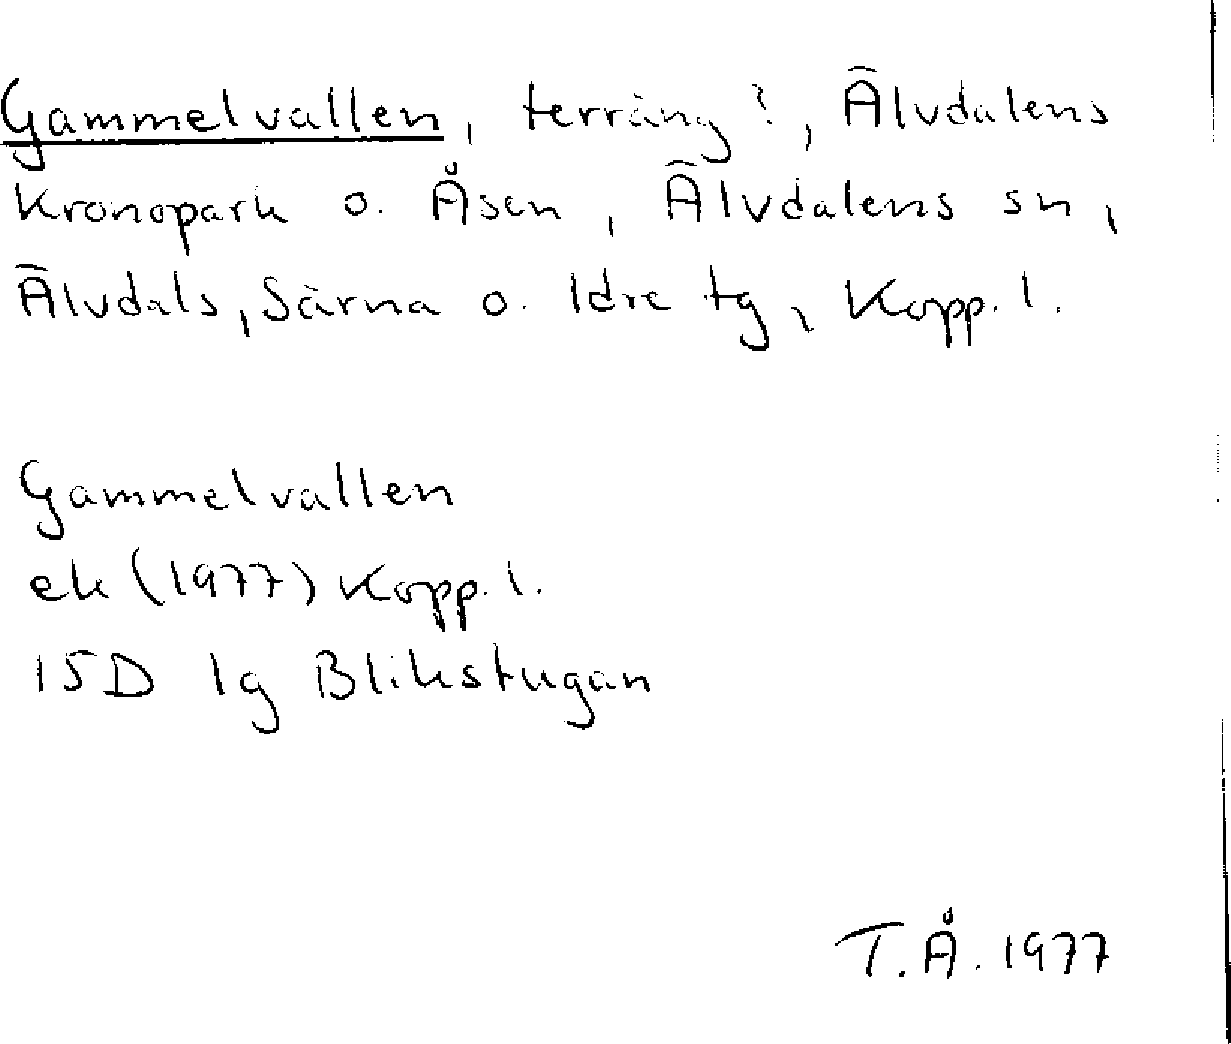 Gammelvallen, terräng?, Älvdalens
Kronopark o. Åsen, Älvdalens sn,
Älvdals, Särna o. Idre tg, Kopp. l.
Gammelvallen
ek (1977) Kopp. l.
15D 1g Blikstugan
T.Å. 1977